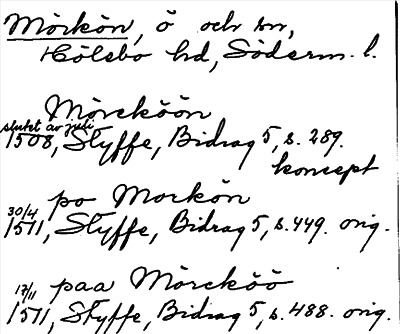 Mörkön, ö och sn,
Hölebo hd, Söderm. l.
Mörcköön
slutet av juli
1508, Styffe, Bidrag 5, s. 289.
koncept
po Morkön
30/4
1511, Styffe, Bidrag 5, s. 449. orig.
17/11 paa Mörcköö
1511, Styffe, Bidrag 5, s. 488. orig.